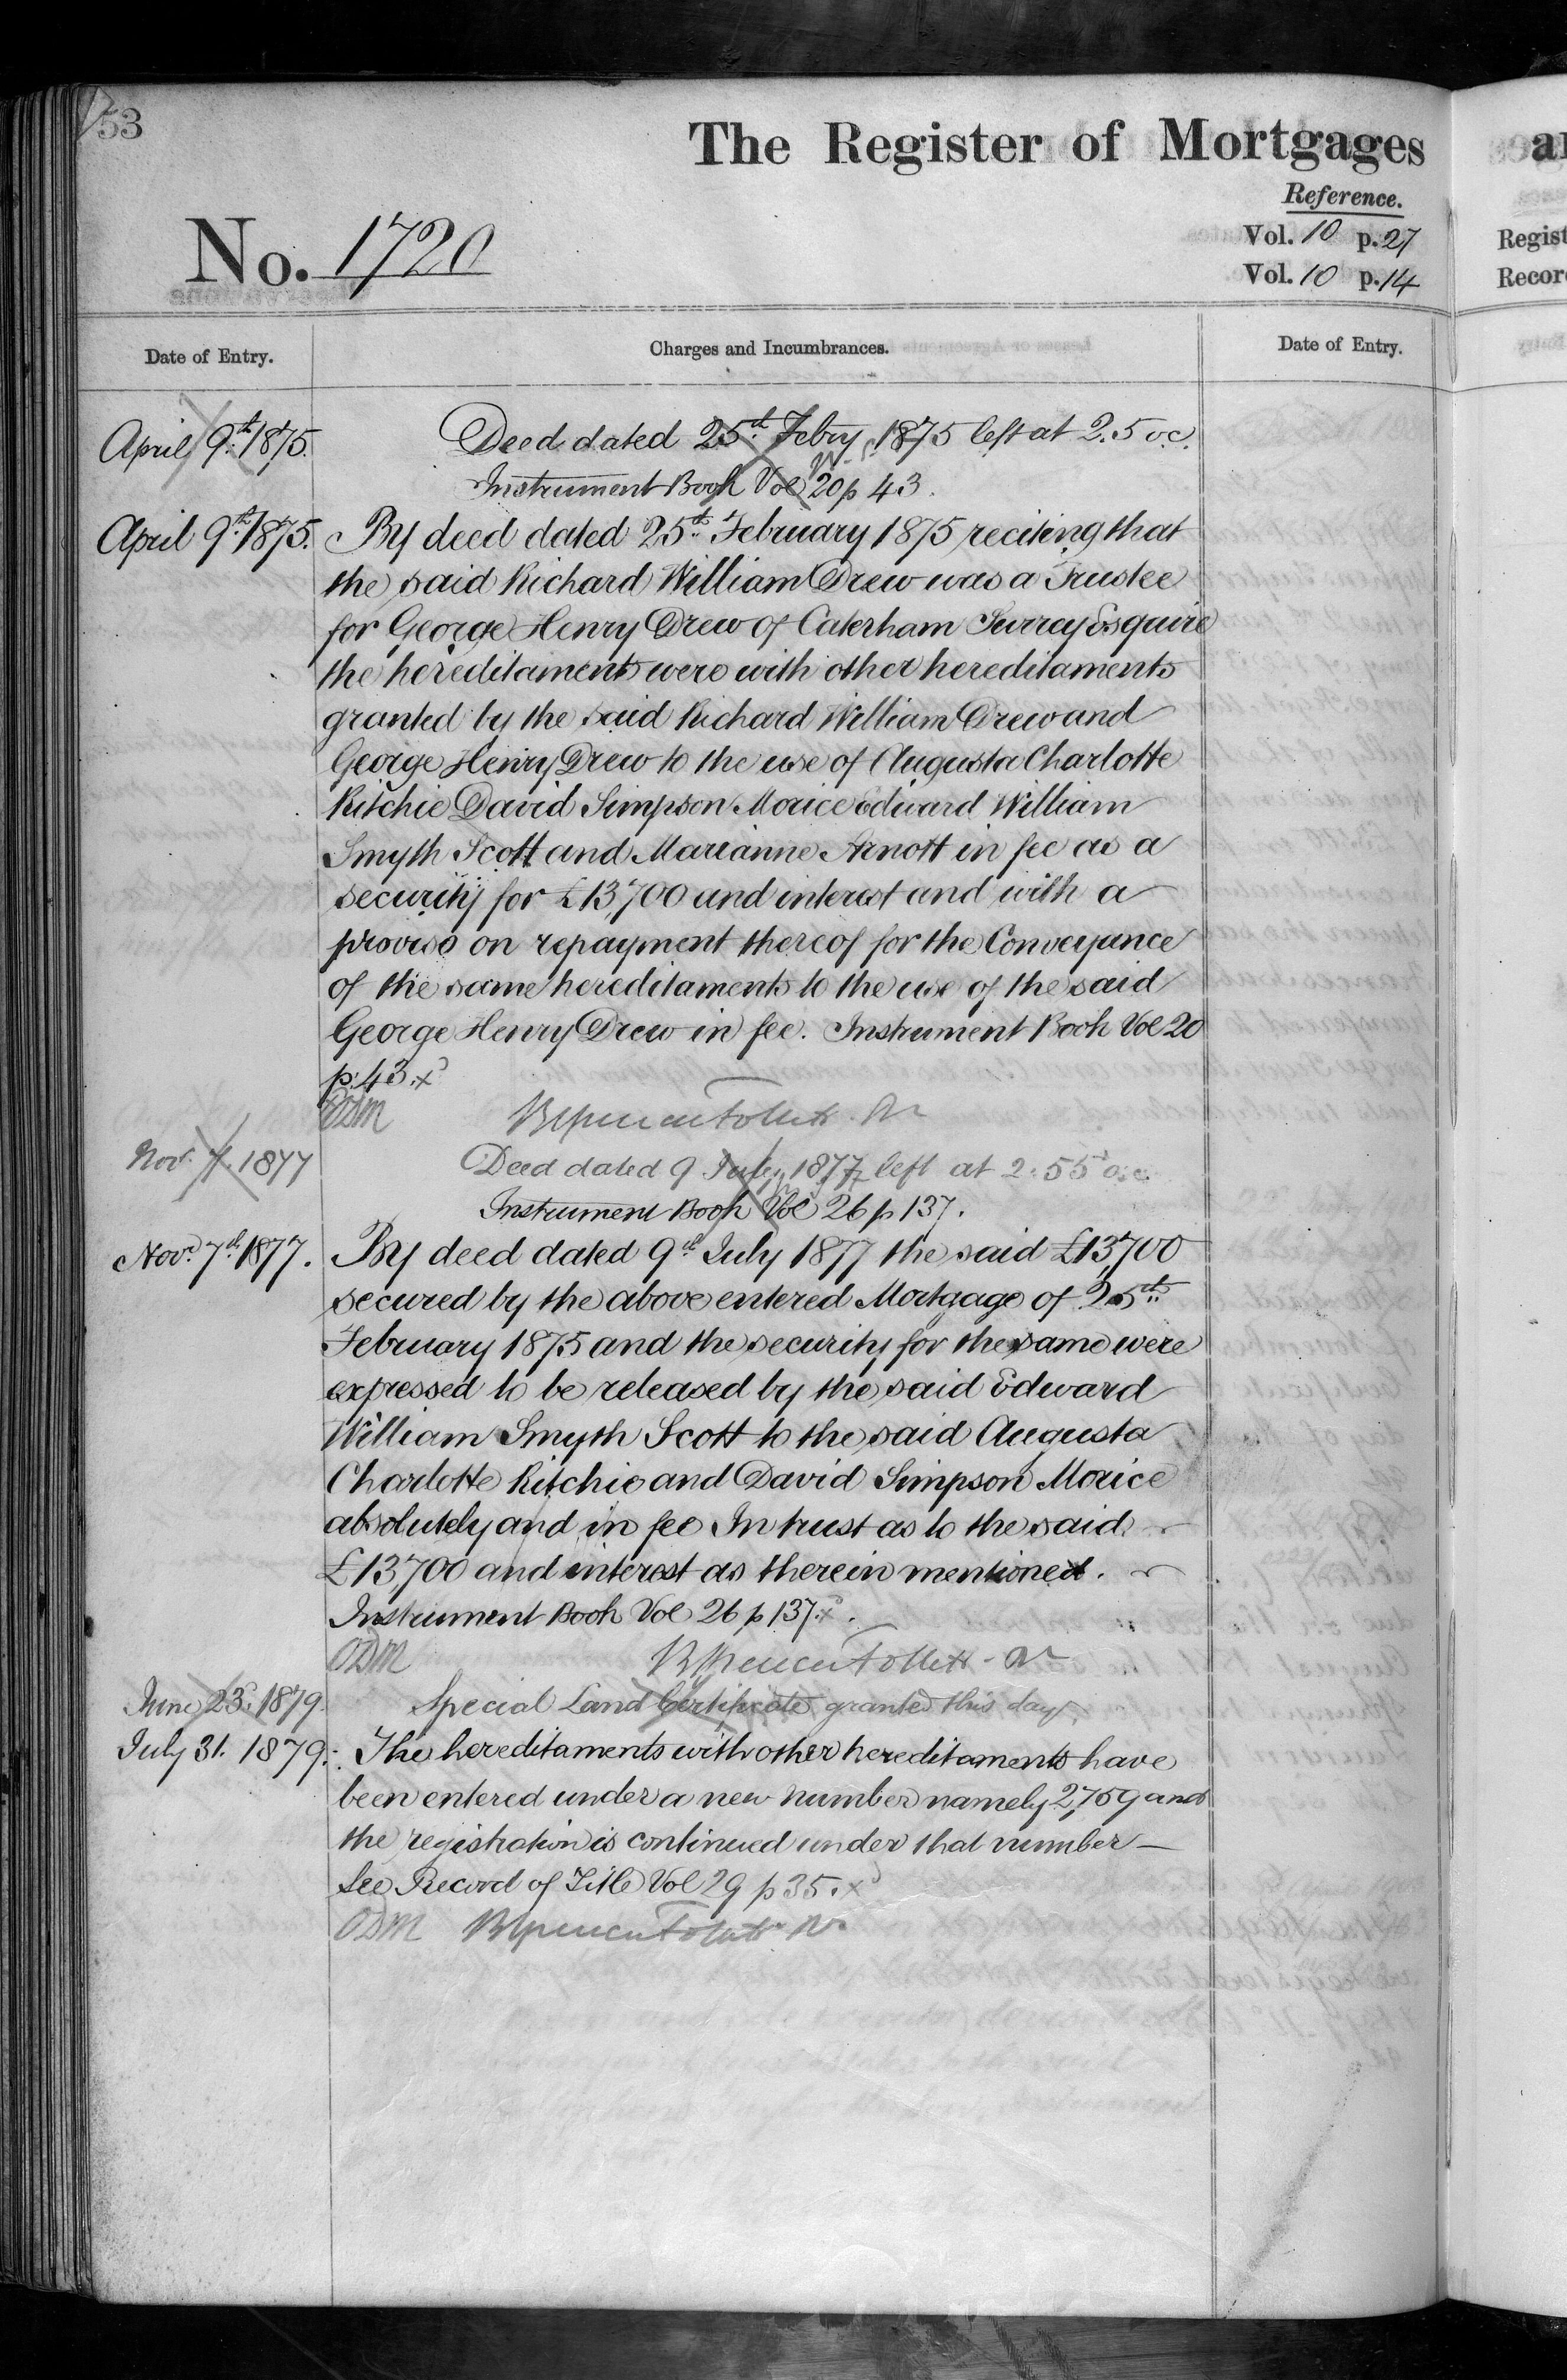 53
The Register of Mortgages
Reference.
No. 1720
Vol. 10 p. 27
Vol. 10 p. 14
Regist
Recor
Date of Entry.
Charges and Incumbrances.
Date of Entry.
April 9th 1875. Deed dated 25th Febry 1875 left at 2.5 oc.
Instrument Book Vol 20 p 43.
April 9th 1875. By deed dated 25th February 1875 reciting that
the said Richard William Drew was a Trustee
for George Henry Drew of Caterham Surrey Esquire
the hereditaments were with other hereditaments
granted by the said Richard William Drew and
George Henry Drew to the use of Augusta Charlotte
Ritchie David Simpson Morice Edward William
Smyth Scott and Marianne Arnott in fee as a
security for £13,700 and interest and with a
proviso on repayment thereof for the Conveyance
of the same hereditaments to the use of the said
George Henry Drew in fee. Instrument Book Vol 20
p. 43. x
ODM
Nov. 7. 1877 Deed dated 9 July 1877 left at 2.55 o.c.
Instrument Book Vol 26 p 137.
Novr 7th 1877. By deed dated 9th July 1877 the said £13,700
secured by the above entered Mortgage of 25th
February 1875 and the security for the same were
expressed to be released by the said Edward
William Smyth Scott to the said Augusta
Charlotte Ritchie and David Simpson Morice
absolutely and in fee In trust as to the said
£13,700 and interest as therein mentioned.
Instrument Book Vol 26 p 137. x
ODM
June 23. 1879. Special Land Certificate granted this day.
July 31. 1879. The hereditaments with other hereditaments have
been entered under a new number namely 2,759 and
the registration is continued under that number —
See Record of Title Vol 29 p 35. x
ODM